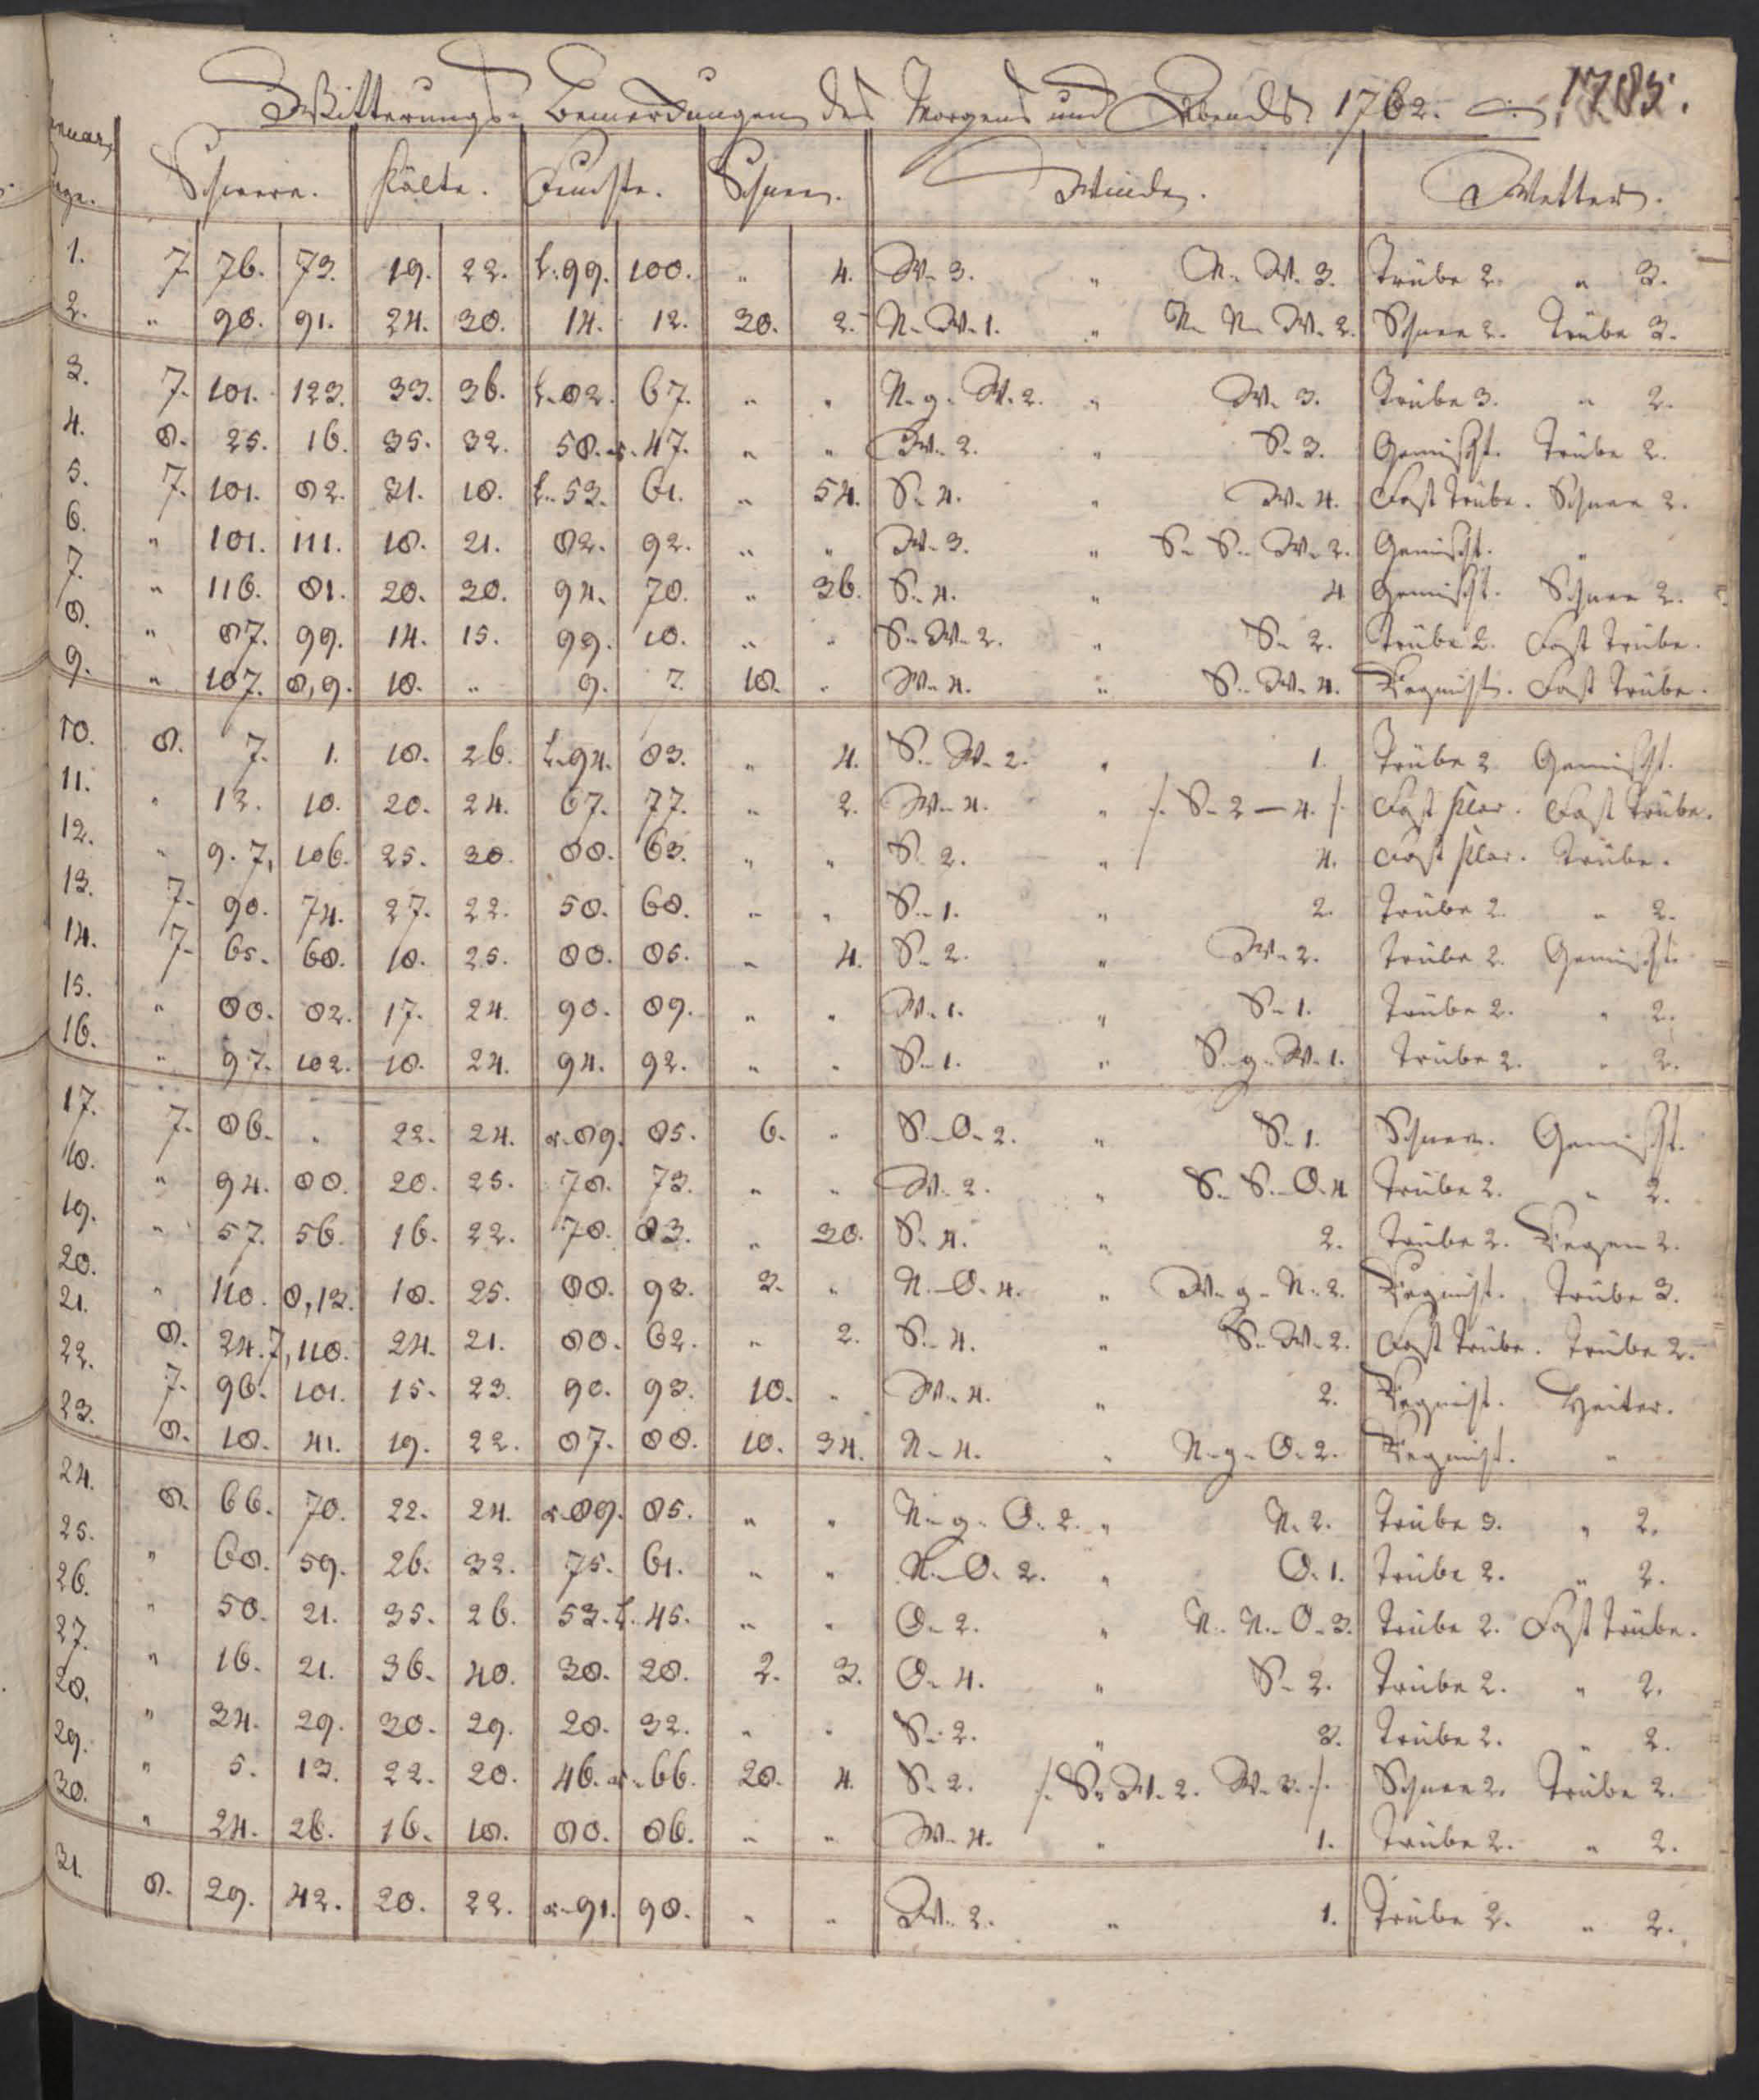 Witterungs- Bemerckungen des Morgens und Abends 1762. 1785.
Januar,
Tage. Schwere. Kälte. Feuchte. Schnee. Winde. Wetter.
1. 7. 76. 73. 19. 22. L. 99. 100. " 4. W. 3. " N. W. 3. Trübe 2. " 3.
2. " 90. 91. 24. 30. 14. 12. 30. 2. N. W. 1. " N. N. W. 2. Schnee 2. Trübe 3.
3. 7. 101. 123. 33. 36. L. 82. 67. " " N. g. W. 2. " W. 3. Trübe 3. " 2.
4. 8. 25. 16. 35. 32. 58. r. 47. " " W. 2. " S. 3. Gemischt. Trübe 2.
5. 7. 101. 82. 31. 18. L. 53. 61. " 54. S. 4. " W. 4. Fast Trübe. Schnee 2.
6. " 101. 111. 18. 21. 82. 92. " " W. 3. " S. S. W. 2. Gemischt. "
7. " 116. 81. 20. 20. 94. 70. " 36. S. 4. " 4 Gemischt. Schnee 2.
8. " 87. 99. 14. 15. 99. 10. " " S. W. 2. " S. 2. Trübe 2. Fast Trübe.
9. " 107. 8, 9. 18. " 9. 7. 18. " W. 4. " S. W. 4. Regnicht. Fast Trübe.
10. 8. 7. 1. 18. 26. L. 94. 83. " 4. S. W. 2. " 1. Trübe 2 Gemischt.
11. " 12. 10. 20. 24. 67. 77. " 2. W. 4. " /. S. 2 — 4. /. Fast klar. Fast Trübe.
12. " 9. 7, 106. 25. 30. 80. 63. " " S. 2. " 4. Fast klar. Trübe.
13. 7. 90. 74. 27. 22. 50. 68. " " S. 1. " 2. Trübe 2. " 2.
14. 7. 65. 68. 18. 25. 80. 85. " 4. S. 2. " W. 2. Trübe 2. Gemischt.
15. " 80. 82. 17. 24. 90. 89. " " W. 1. " S. 1. Trübe 2. " 2.
16. " 97. 102. 18. 24. 94. 92. " " S. 1. " S. g. W. 1. Trübe 2. " 2.
17. 7. 86. " 22. 24. r. 89. 85. 6. " S. O. 2. " S. 1. Schnee. Gemischt.
18. " 94. 80. 20. 25. 78. 73. " " W. 2. " S. S. O. 4 Trübe 2. " 2.
19. " 57. 56. 16. 22. 70. 83. " 30. S. 4. " 2. Trübe 2. Regen 2.
20. " 110. 8, 13. 18. 25. 80. 93. 3. " N. O. 4. " W. g. N. 2. Regnicht. Trübe 3.
21. 8. 24. 7, 110. 24. 21. 80. 62. " 2. S. 4. " S. W. 2. Fast Trübe. Trübe 2.
22. 7. 96. 101. 15. 23. 90. 93. 10. " W. 4. " 2. Regnicht. Heiter.
23. 8. 18. 41. 19. 22. 87. 88. 10. 34. N. 4. " N. g. O. 2. Regnicht. "
24. 8. 66. 70. 22. 24. r. 89. 85. " " N. g. O. 2. " N. 2. Trübe 3. " 2.
25. " 68. 59. 26. 32. 75. 61. " " N. O. 2. " O. 1. Trübe 2. " 2.
26. " 50. 21. 35. 26. 53. L. 45. " " O. 2. " N. N. O. 3. Trübe 2. Fast Trübe.
27. " 16. 21. 36. 40. 30. 28. 2. 3. O. 4. " S. 2. Trübe 2. " 2.
28. " 34. 29. 30. 29. 28. 32. " " S. 2. " 3. Trübe 2. " 2.
29. " 5. 13. 22. 20. 46. r. 66. 20. 4. S. 2. /. S. W. 2. W. 3. /. Schnee 2. Trübe 2.
30. " 24. 26. 16. 18. 80. 86. " " W. 4. " 1. Trübe 2. " 2.
31. 8. 29. 42. 20. 22. r. 91. 90. " " W. 2. " 1. Trübe 2. " 2.